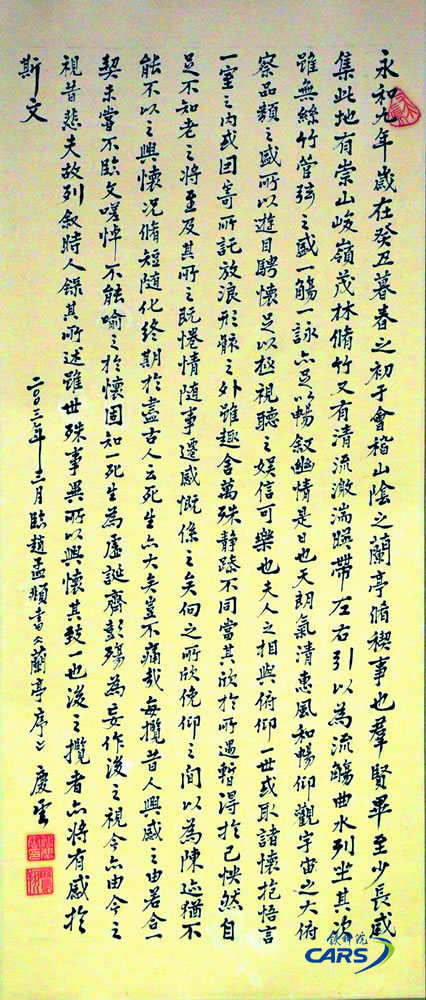 永和九年歲在癸丑暮春之初于會稽山陰之蘭亭脩禊事也羣賢畢至少長咸
集此地有崇山峻嶺茂林脩竹又有清流激湍暎帶左右引以為流觴曲水列坐其次
雖無絲竹管弦之盛一觴一詠亦足以暢敘幽情是日也天朗氣清惠風和暢仰觀宇宙之大俯
察品類之盛所以遊目騁懷足以極視聽之娛信可樂也夫人之相與俯仰一世或取諸懷抱悟言
一室之内或因寄所託放浪形骸之外雖趣舍萬殊静躁不同當其欣於所遇暫得於己怏然自
足不知老之將至及其所之既惓情隨事遷感慨係之矣向之所欣俛仰之間以為陳迹猶不
能不以之興懷况脩短隨化終期於盡古人云死生亦大矣豈不痛哉每攬昔人興感之由若合一
契未嘗不臨文嗟悼不能喻之於懷固知一死生為虛誕齊彭殤為妄作後之視今亦由今之
視昔悲夫故列叙時人錄其所述雖世殊事異所以興懷其致一也後之攬者亦將有感於
斯文
月臨趙孟頫書之蘭亭序 慶雲
鐵科院
CARS